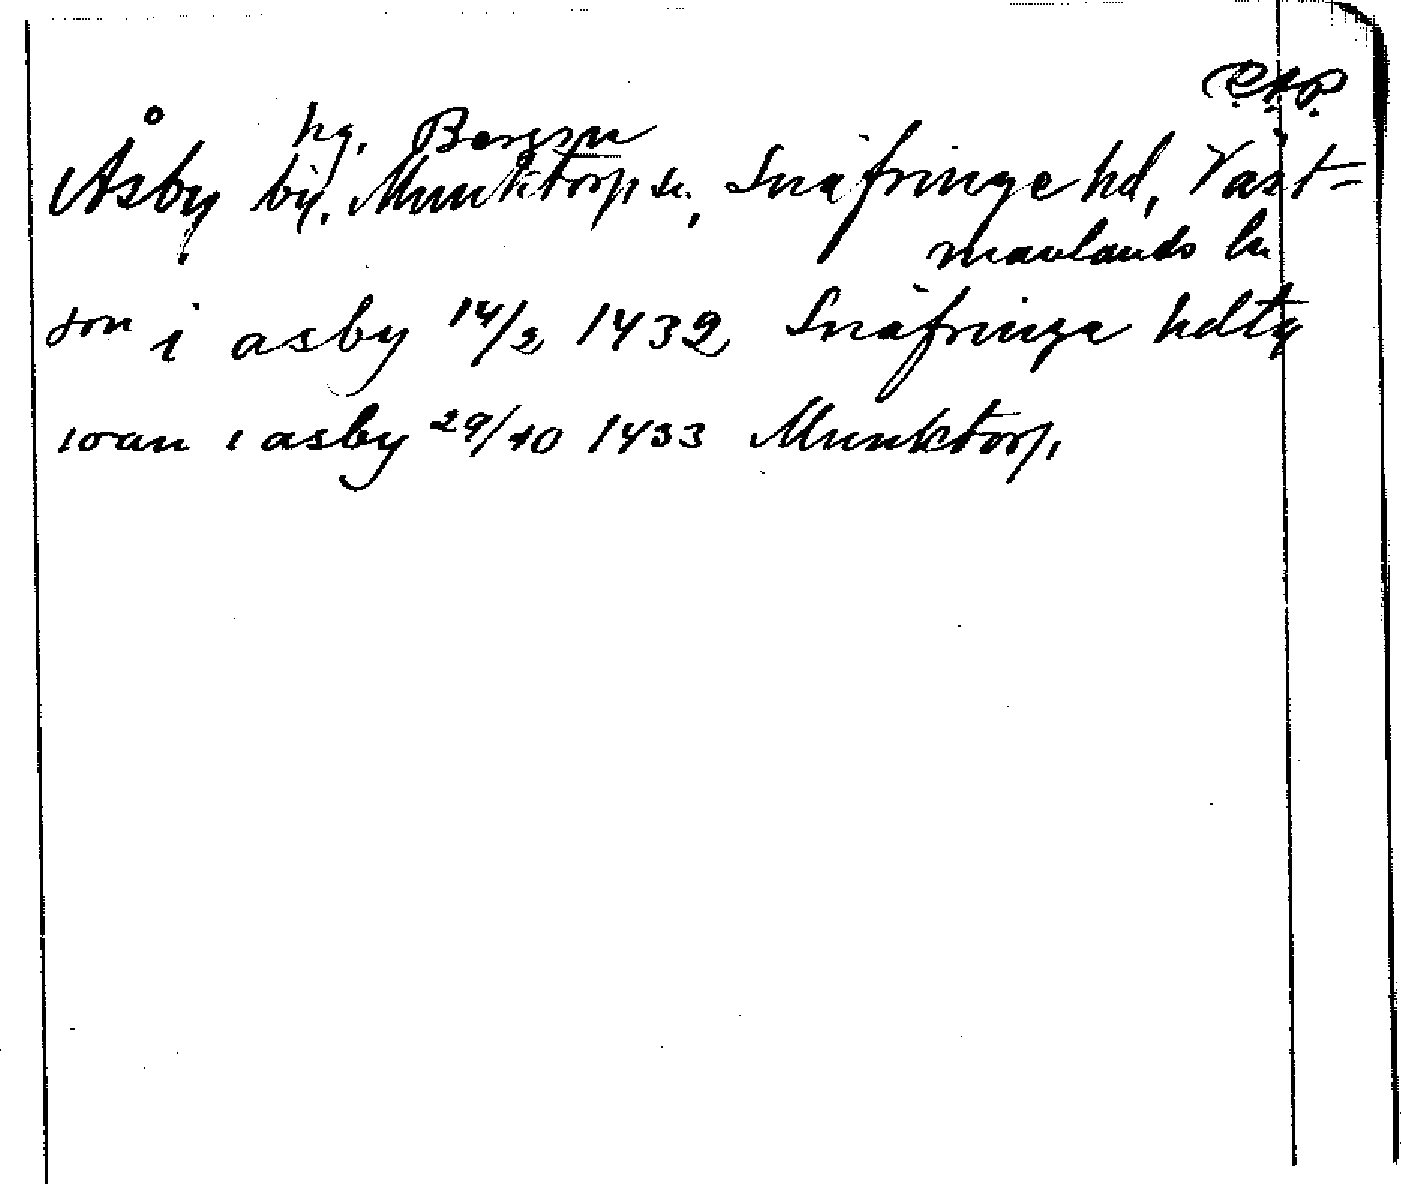 R.A.P.
hg. Bergsn
Åsby by, Munktorp sn, Snäfringe hd, Väst=
manlands ln
son i asby 14/2 1432 Snäfringe hdtg
ioan i asby 29/10 1433 Munktorp,